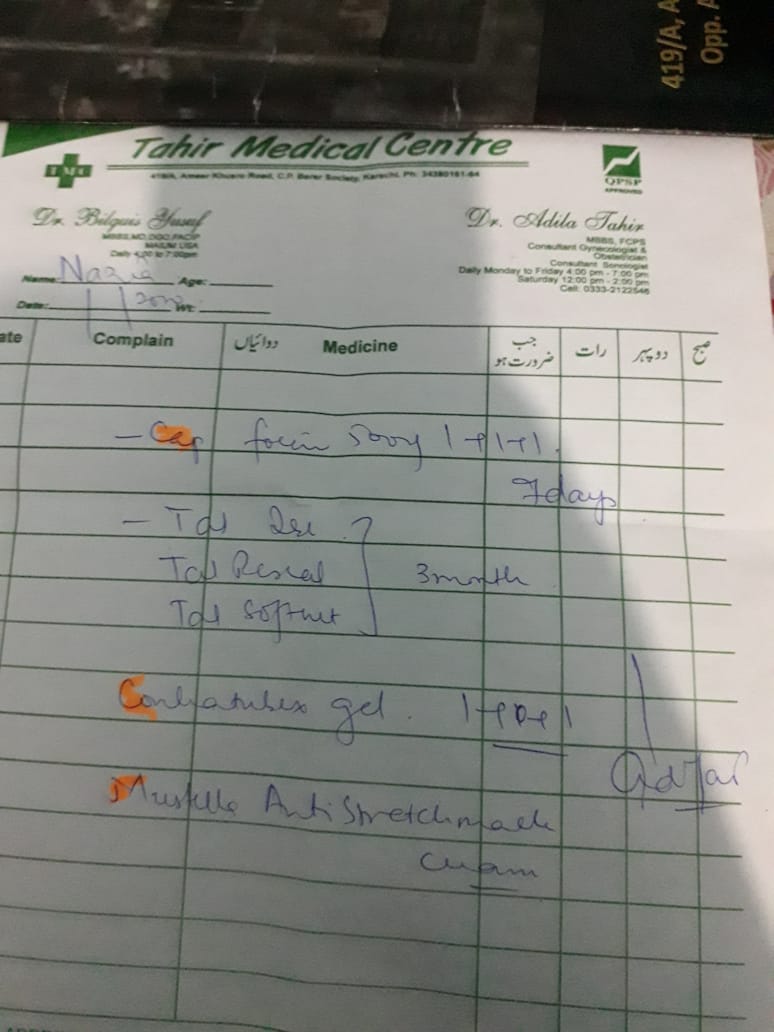 419/A, A
Opp. A
Tahir Medical Centre
TMC
419/A, Ameer Khusro Road, C.P. Berar Society, Karachi. Ph: 34380161-64
QPSP
APPROVED
Dr. Bilquis Yusuf
Daily 4:00 to 7:00pm
Dr. Adila Tahir
MBBS, FCPS
Consultant Gynecologist &
Obstetrician
Consultant Sonologist
Daily Monday to Friday 4:00 pm - 7:00 pm
Saturday 12:00 pm - 2:00 pm
Cell: 0333-2122546
Name: Nazia Age:
Date: Wt:
ate Complain دوائیاں Medicine جب ضرورت ہو رات دوپہر صبح
- Cap 500mg 1+1+1.
7days
- Tab
Tab
Tab Softnut
3month
Contratubex gel. 1+0+1
Mustella Anti Stretchmark
Cream